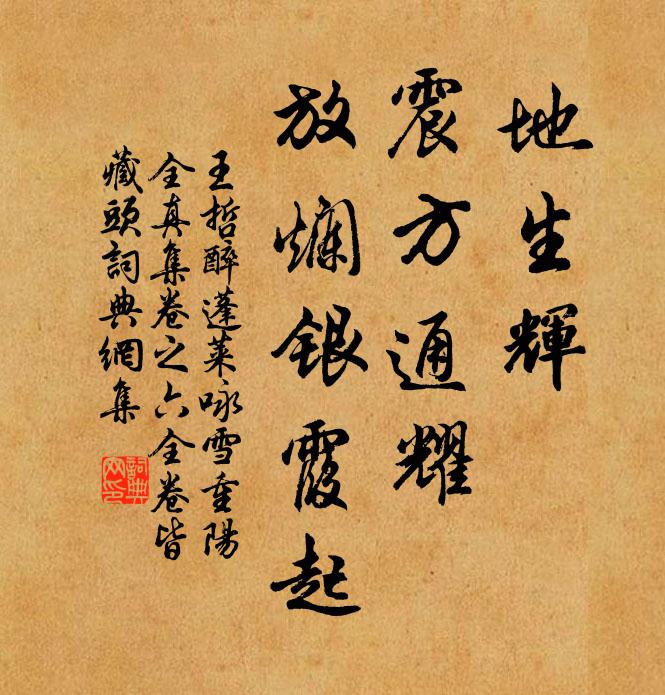 地生輝
震方通耀
放爛銀霞起
王哲醉蓬萊咏雪重陽
全真集卷之六全卷皆
藏頭詞典網集
詞典
网印